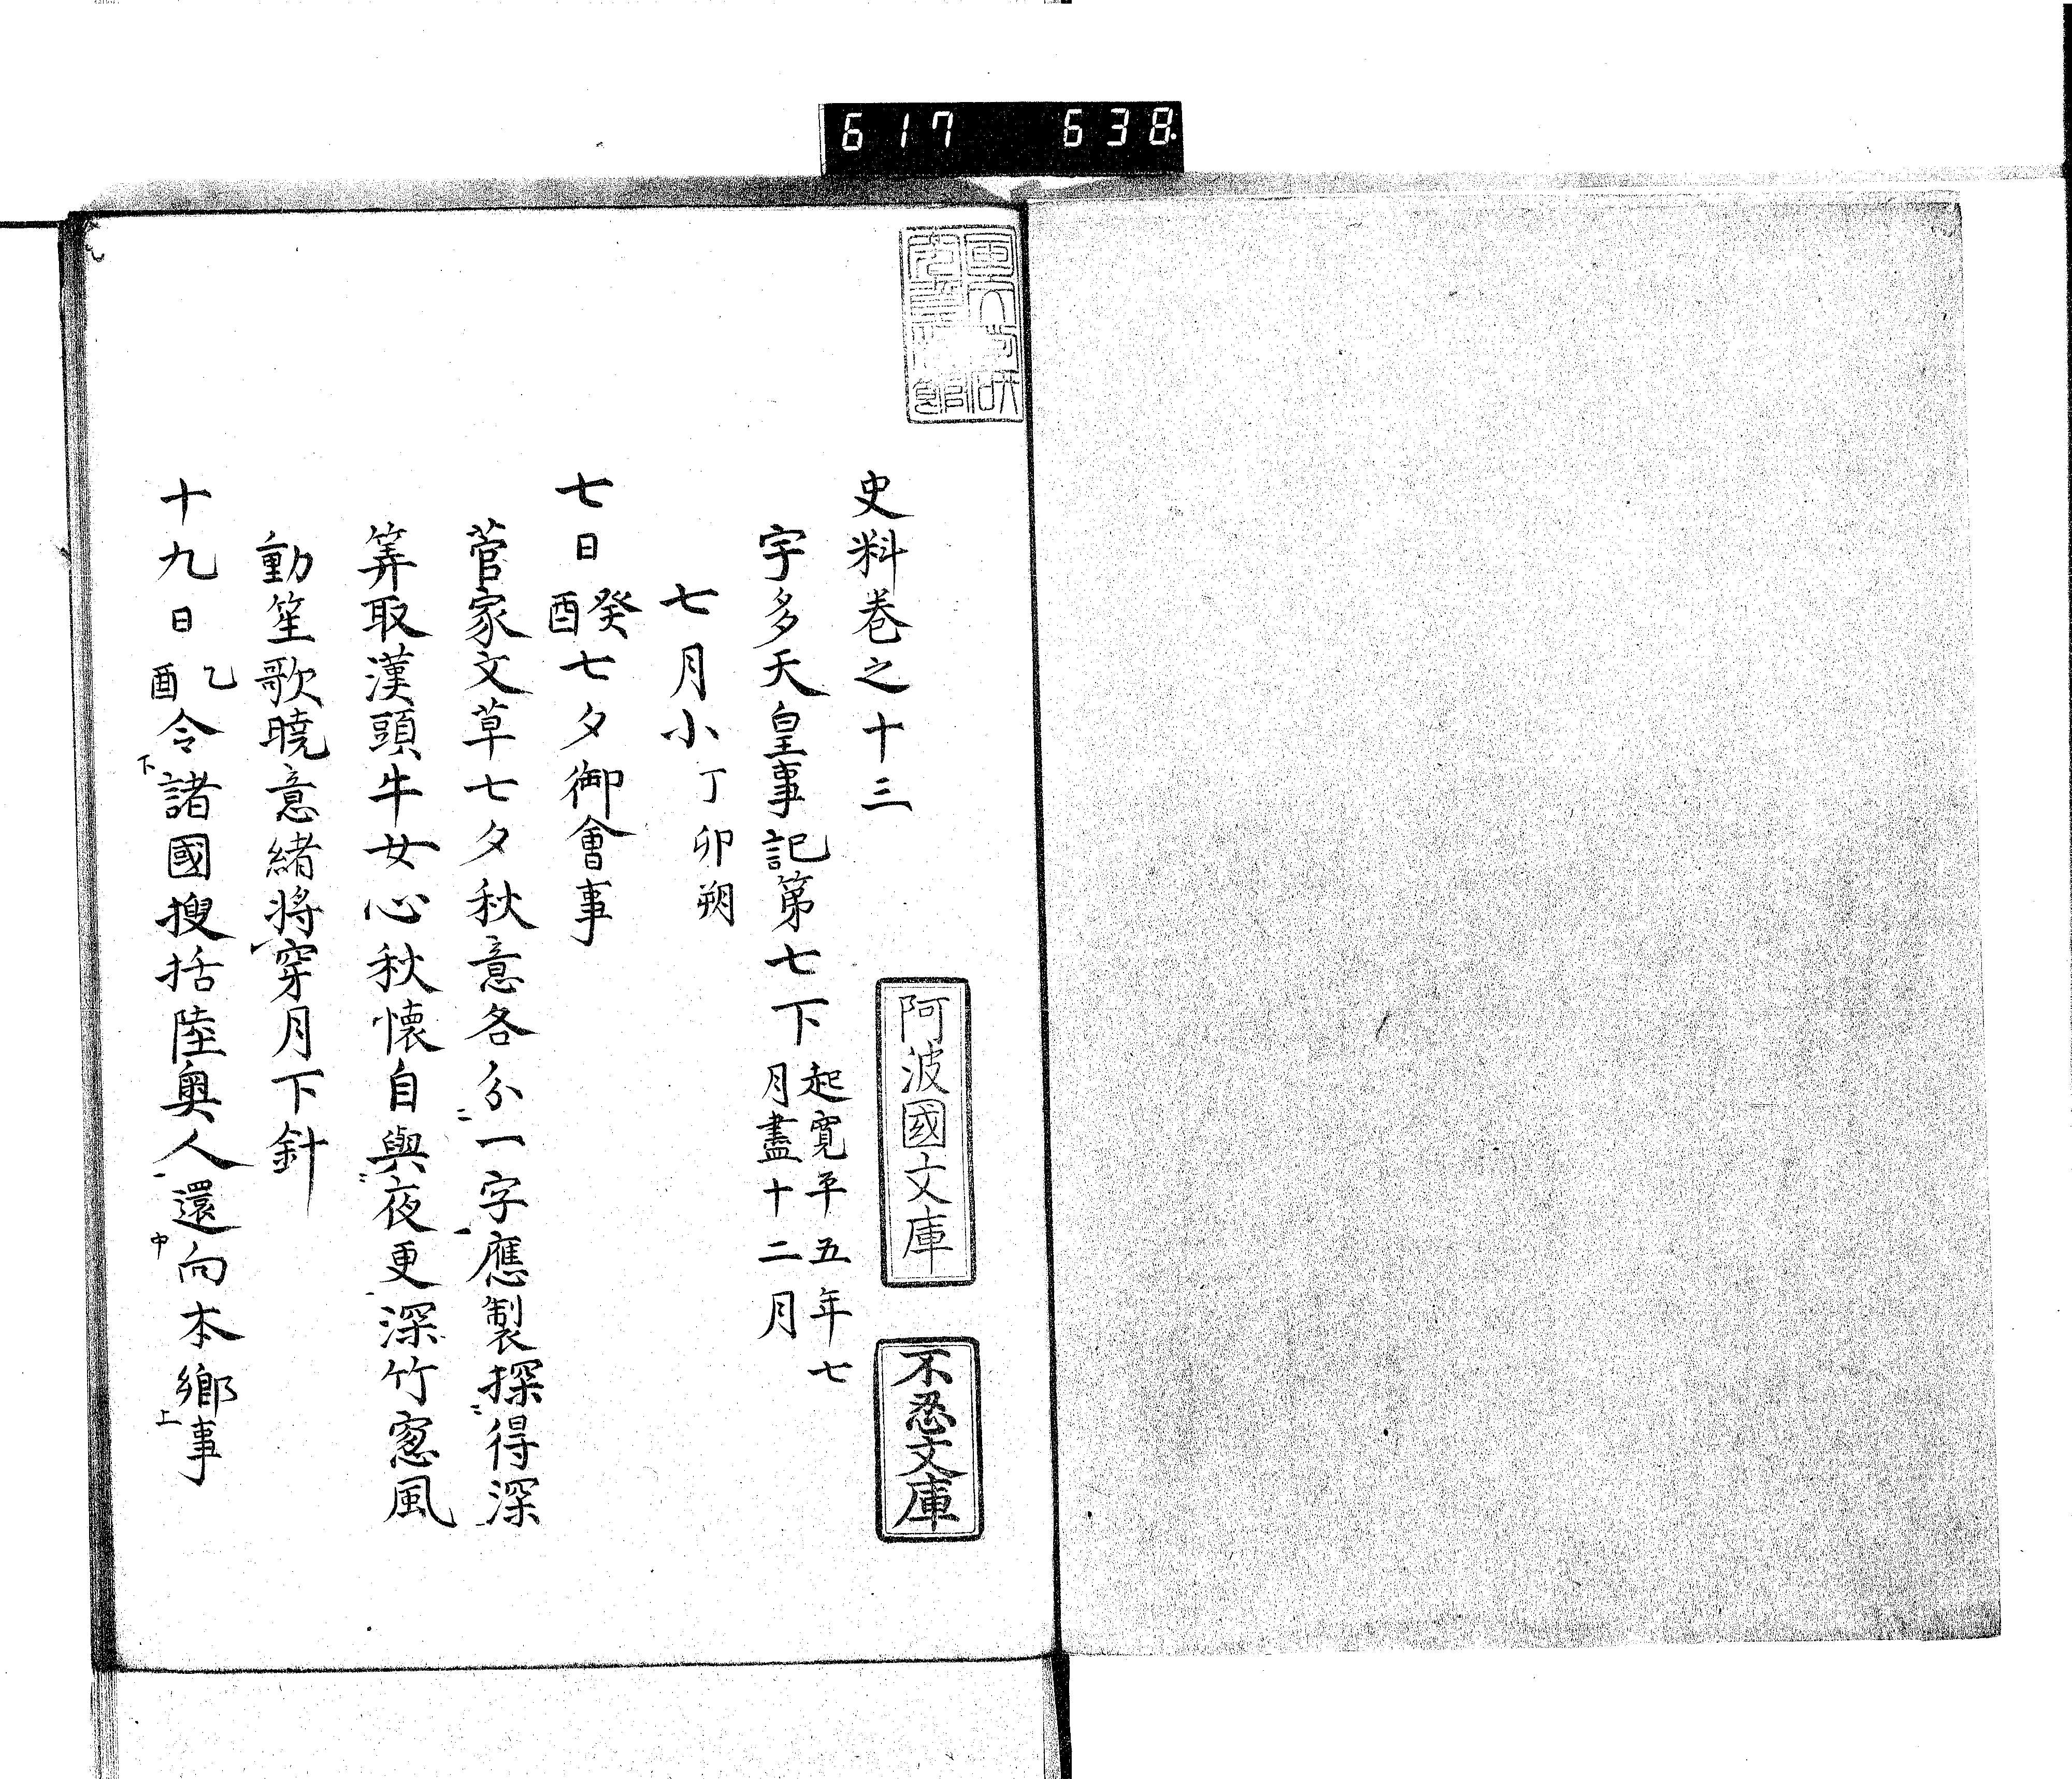 617 638
史料巻之十三
阿波國文庫
不忍文庫
宇多天皇事記第七下 起寛平五年七
月盡十二月
七月小 丁卯朔
七日癸酉七夕御會事
菅家文草七夕秋意各分一字應製探得深
筭取漢頭牛女心秋懷自與夜更深竹窓風
動笙歌曉意緒將穿月下針
十九日乙酉令諸國搜括陸奥人還向本郷事
下 二 一 二 一 二 一 一 中 上